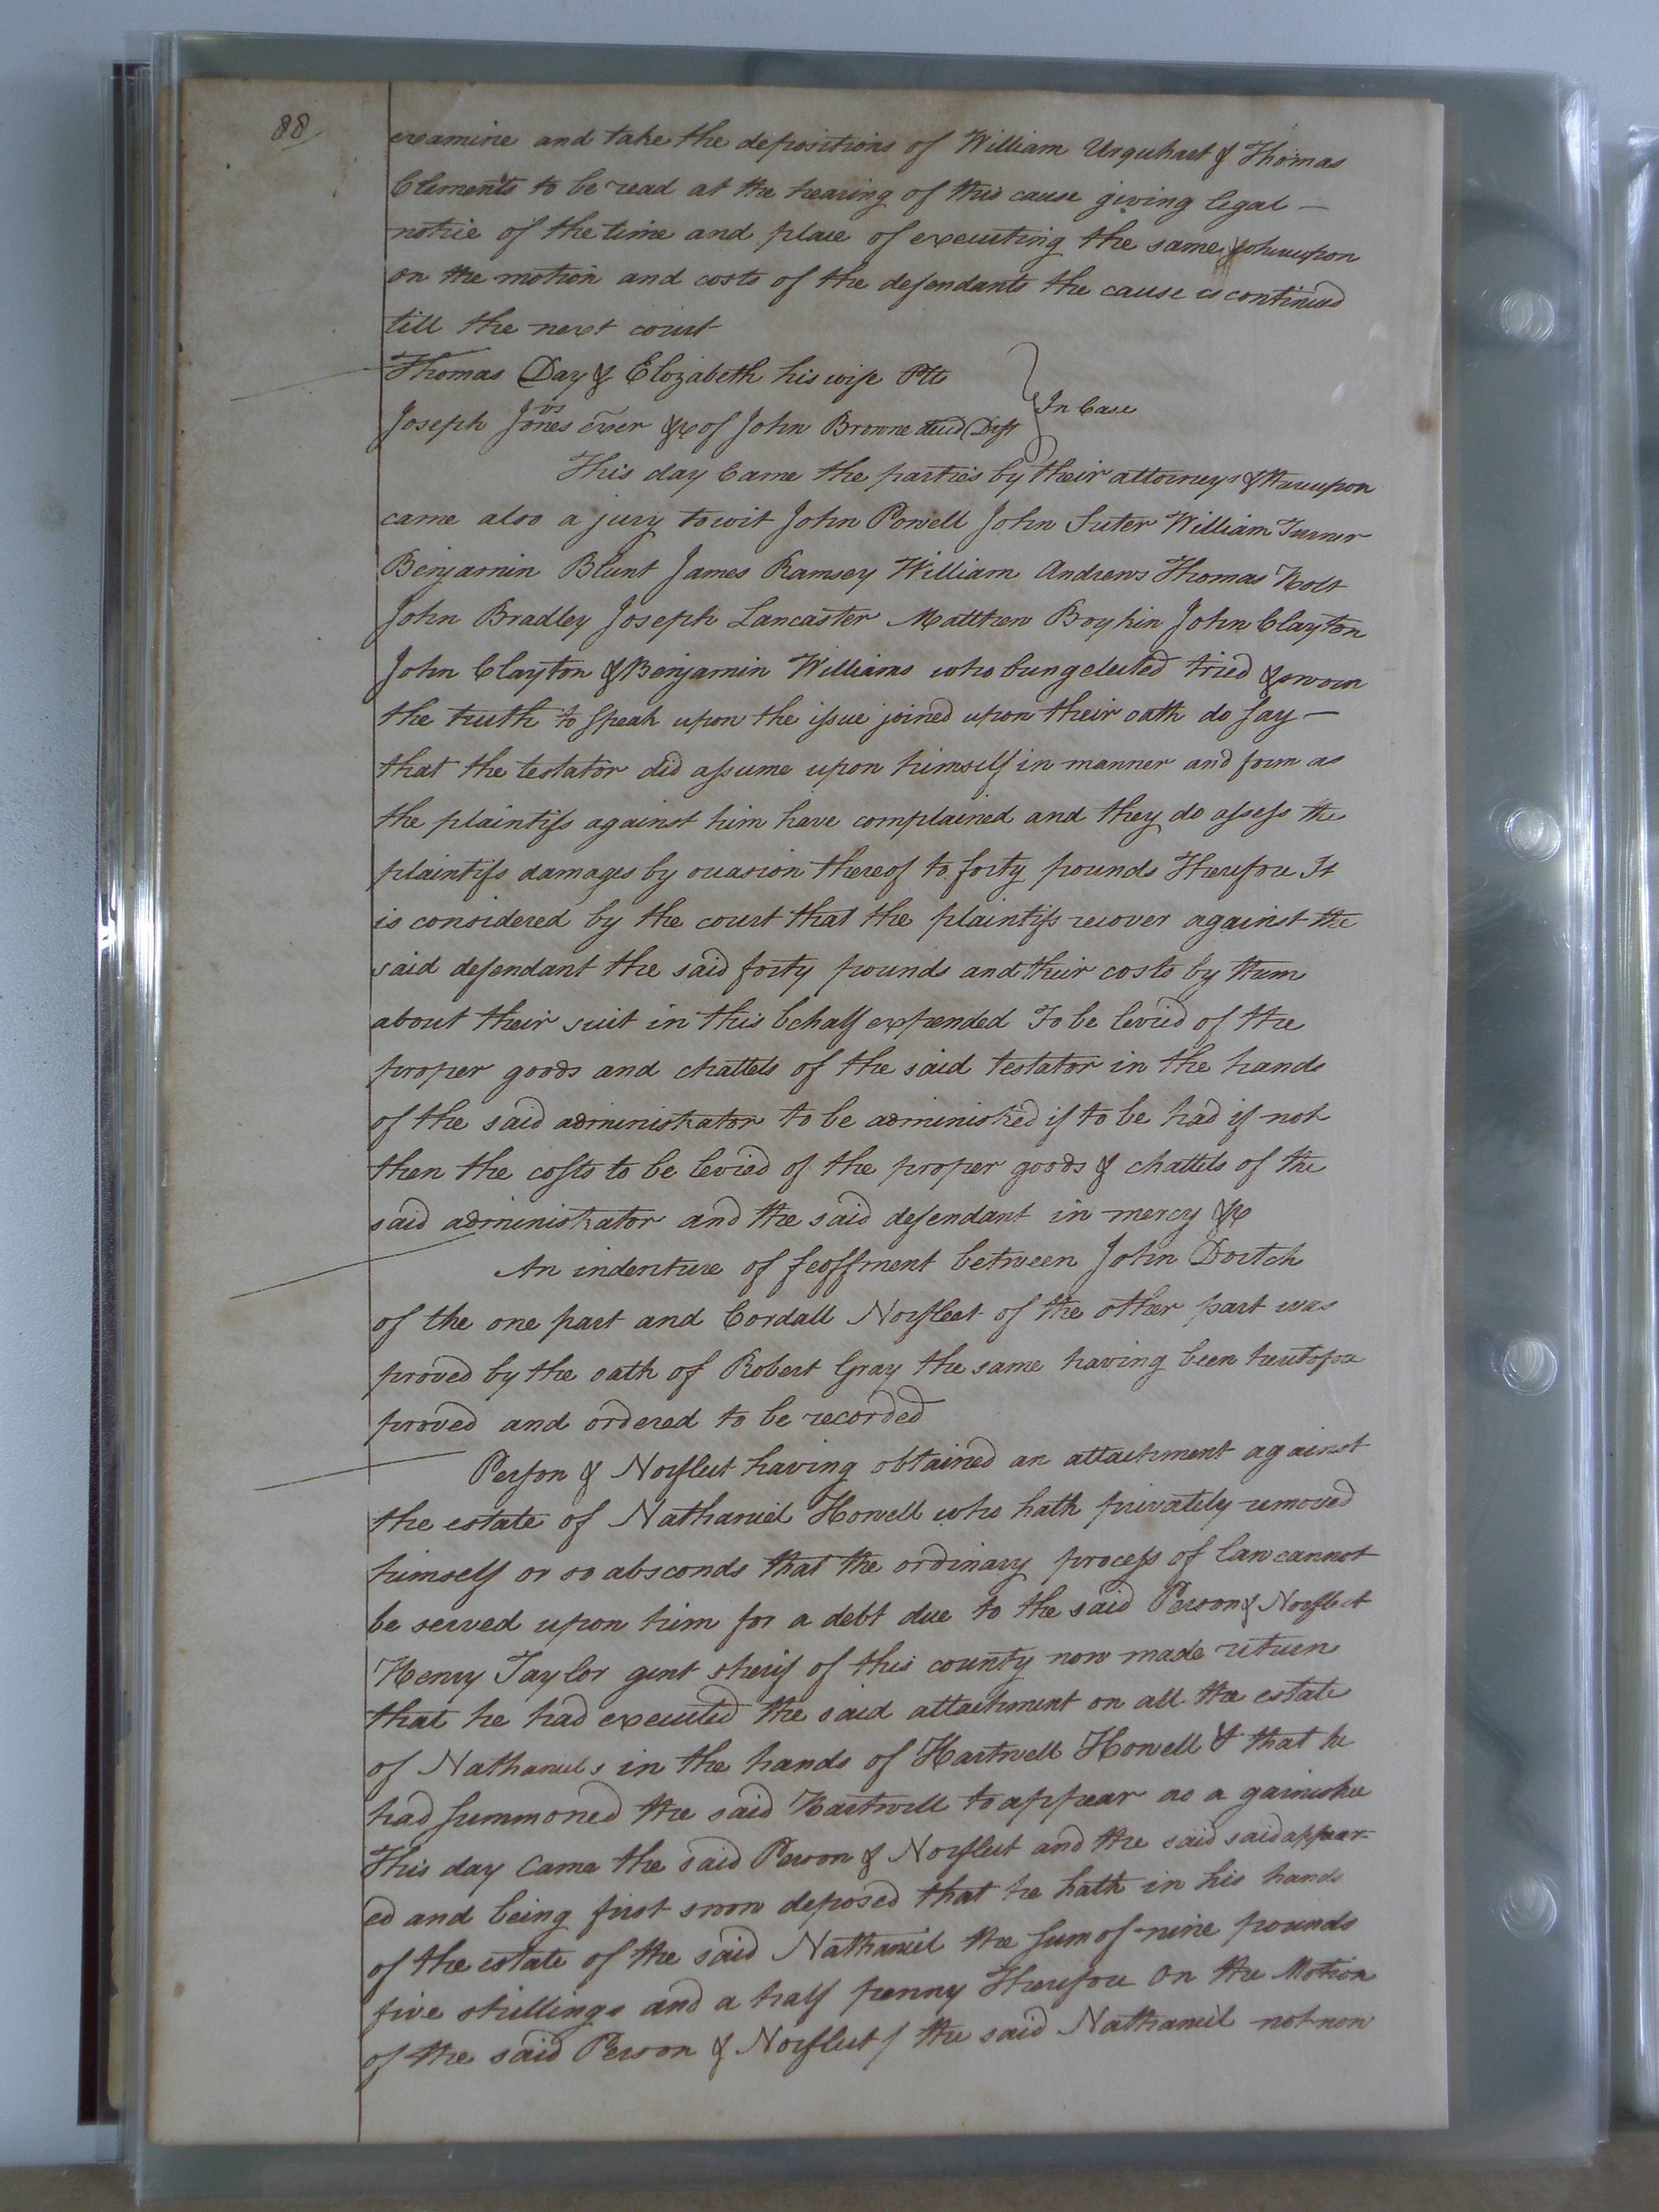 88
examine and take the depositions of William Urquhart & Thomas
Clements to be read at the hearing of this cause giving legal —
notice of the time and place of executing the same whereupon
on the motion and costs of the defendants the cause is continued
till the next court
Thomas Day & Elizabeth his wife Plts
vs
In Case
Joseph Jones exer &c of John Browne decd Deft
This day Came the parties by their attorneys & thereupon
came also a jury towit John Powell John Suter William Turner
Benjamin Blunt James Ramsey William Andrews Thomas Holt
John Bradley Joseph Lancaster Matthew Boykin John Clayton
John Clayton & Benjamin Williams who being elected tried & sworn
the truth to speak upon the issue joined upon their oath do say —
that the testator did assume upon himself in manner and form as
the plaintiffs against him have complained and they do assess the
plaintiffs damages by occasion thereof to forty pounds Therefore It
is considered by the court that the plaintiffs recover against the
said defendant the said forty pounds and their costs by them
about their suit in this behalf expended To be levied of the
proper goods and chattels of the said testator in the hands
of the said administrator to be administred if to be had if not
then the costs to be levied of the proper goods & chattels of the
said administrator and the said defendant in mercy &c
An indenture of feoffment between John Dortch
of the one part and Cordall Norfleet of the other part was
proved by the oath of Robert Gray the same having been heretofore
proved and ordered to be recorded
Person & Norfleet having obtained an attachment against
the estate of Nathaniel Howell who hath privately removed
himself or so absconds that the ordinary process of law cannot
be served upon him for a debt due to the said Person & Norfleet
Henry Taylor gent sherif of this county now made return
that he had executed the said attachment on all the estate
of Nathaniels in the hands of Hartwell Howell & that he
had summoned the said Hartwell to appear as a garnishee
This day Came the said Person & Norfleet and the said said appear-
ed and being first sworn deposed that he hath in his hands
of the estate of the said Nathaniel the sum of nine pounds
five shillings and a half penny Therefore On the Motion
of the said Person & Norfleet / the said Nathaniel not now